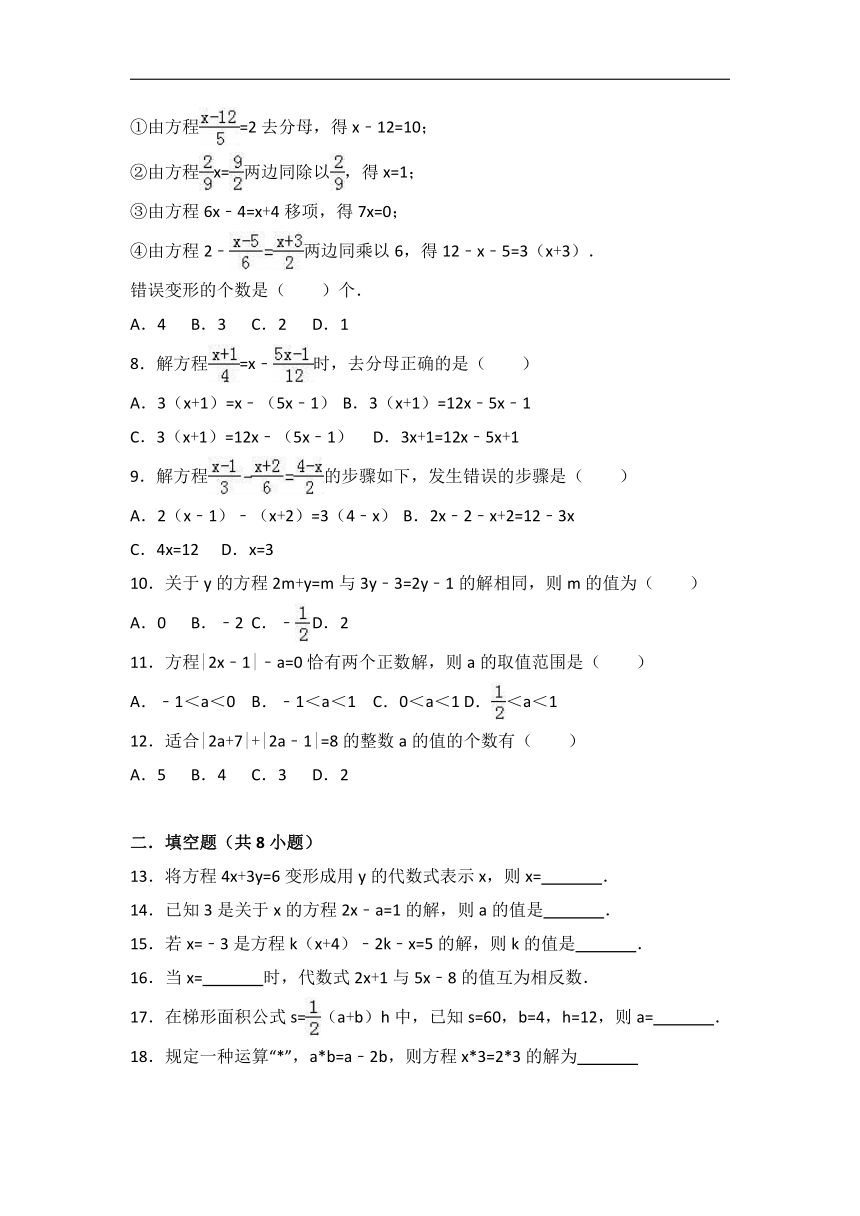 ①由方程\frac{x-12}{5}=2去分母,得x﹣12=10;
②由方程\frac{2}{9}x=\frac{9}{2}两边同除以\frac{2}{9},得x=1;
③由方程6x﹣4=x+4移项,得7x=0;
④由方程2﹣\frac{x-5}{6}=\frac{x+3}{2}两边同乘以6,得12﹣x﹣5=3(x+3).
错误变形的个数是(  )个.
A.4 B.3 C.2 D.1
8.解方程\frac{x+1}{4}=x﹣\frac{5x-1}{12}时,去分母正确的是(  )
A.3(x+1)=x﹣(5x﹣1) B.3(x+1)=12x﹣5x﹣1
C.3(x+1)=12x﹣(5x﹣1) D.3x+1=12x﹣5x+1
9.解方程\frac{x-1}{3}-\frac{x+2}{6}=\frac{4-x}{2}的步骤如下,发生错误的步骤是(  )
A.2(x﹣1)﹣(x+2)=3(4﹣x) B.2x﹣2﹣x+2=12﹣3x
C.4x=12 D.x=3
10.关于y的方程2m+y=m与3y﹣3=2y﹣1的解相同,则m的值为(  )
A.0 B.﹣2 C.﹣\frac{1}{2} D.2
11.方程|2x﹣1|﹣a=0恰有两个正数解,则a的取值范围是(  )
A.﹣1<a<0 B.﹣1<a<1 C.0<a<1 D.\frac{1}{2}<a<1
12.适合|2a+7|+|2a﹣1|=8的整数a的值的个数有(  )
A.5 B.4 C.3 D.2
二.填空题(共8小题)
13.将方程4x+3y=6变形成用y的代数式表示x,则x=_______.
14.已知3是关于x的方程2x﹣a=1的解,则a的值是_______.
15.若x=﹣3是方程k(x+4)﹣2k﹣x=5的解,则k的值是_______.
16.当x=_______时,代数式2x+1与5x﹣8的值互为相反数.
17.在梯形面积公式s=\frac{1}{2}(a+b)h中,已知s=60,b=4,h=12,则a=_______.
18.规定一种运算“*”,a*b=a﹣2b,则方程x*3=2*3的解为_______